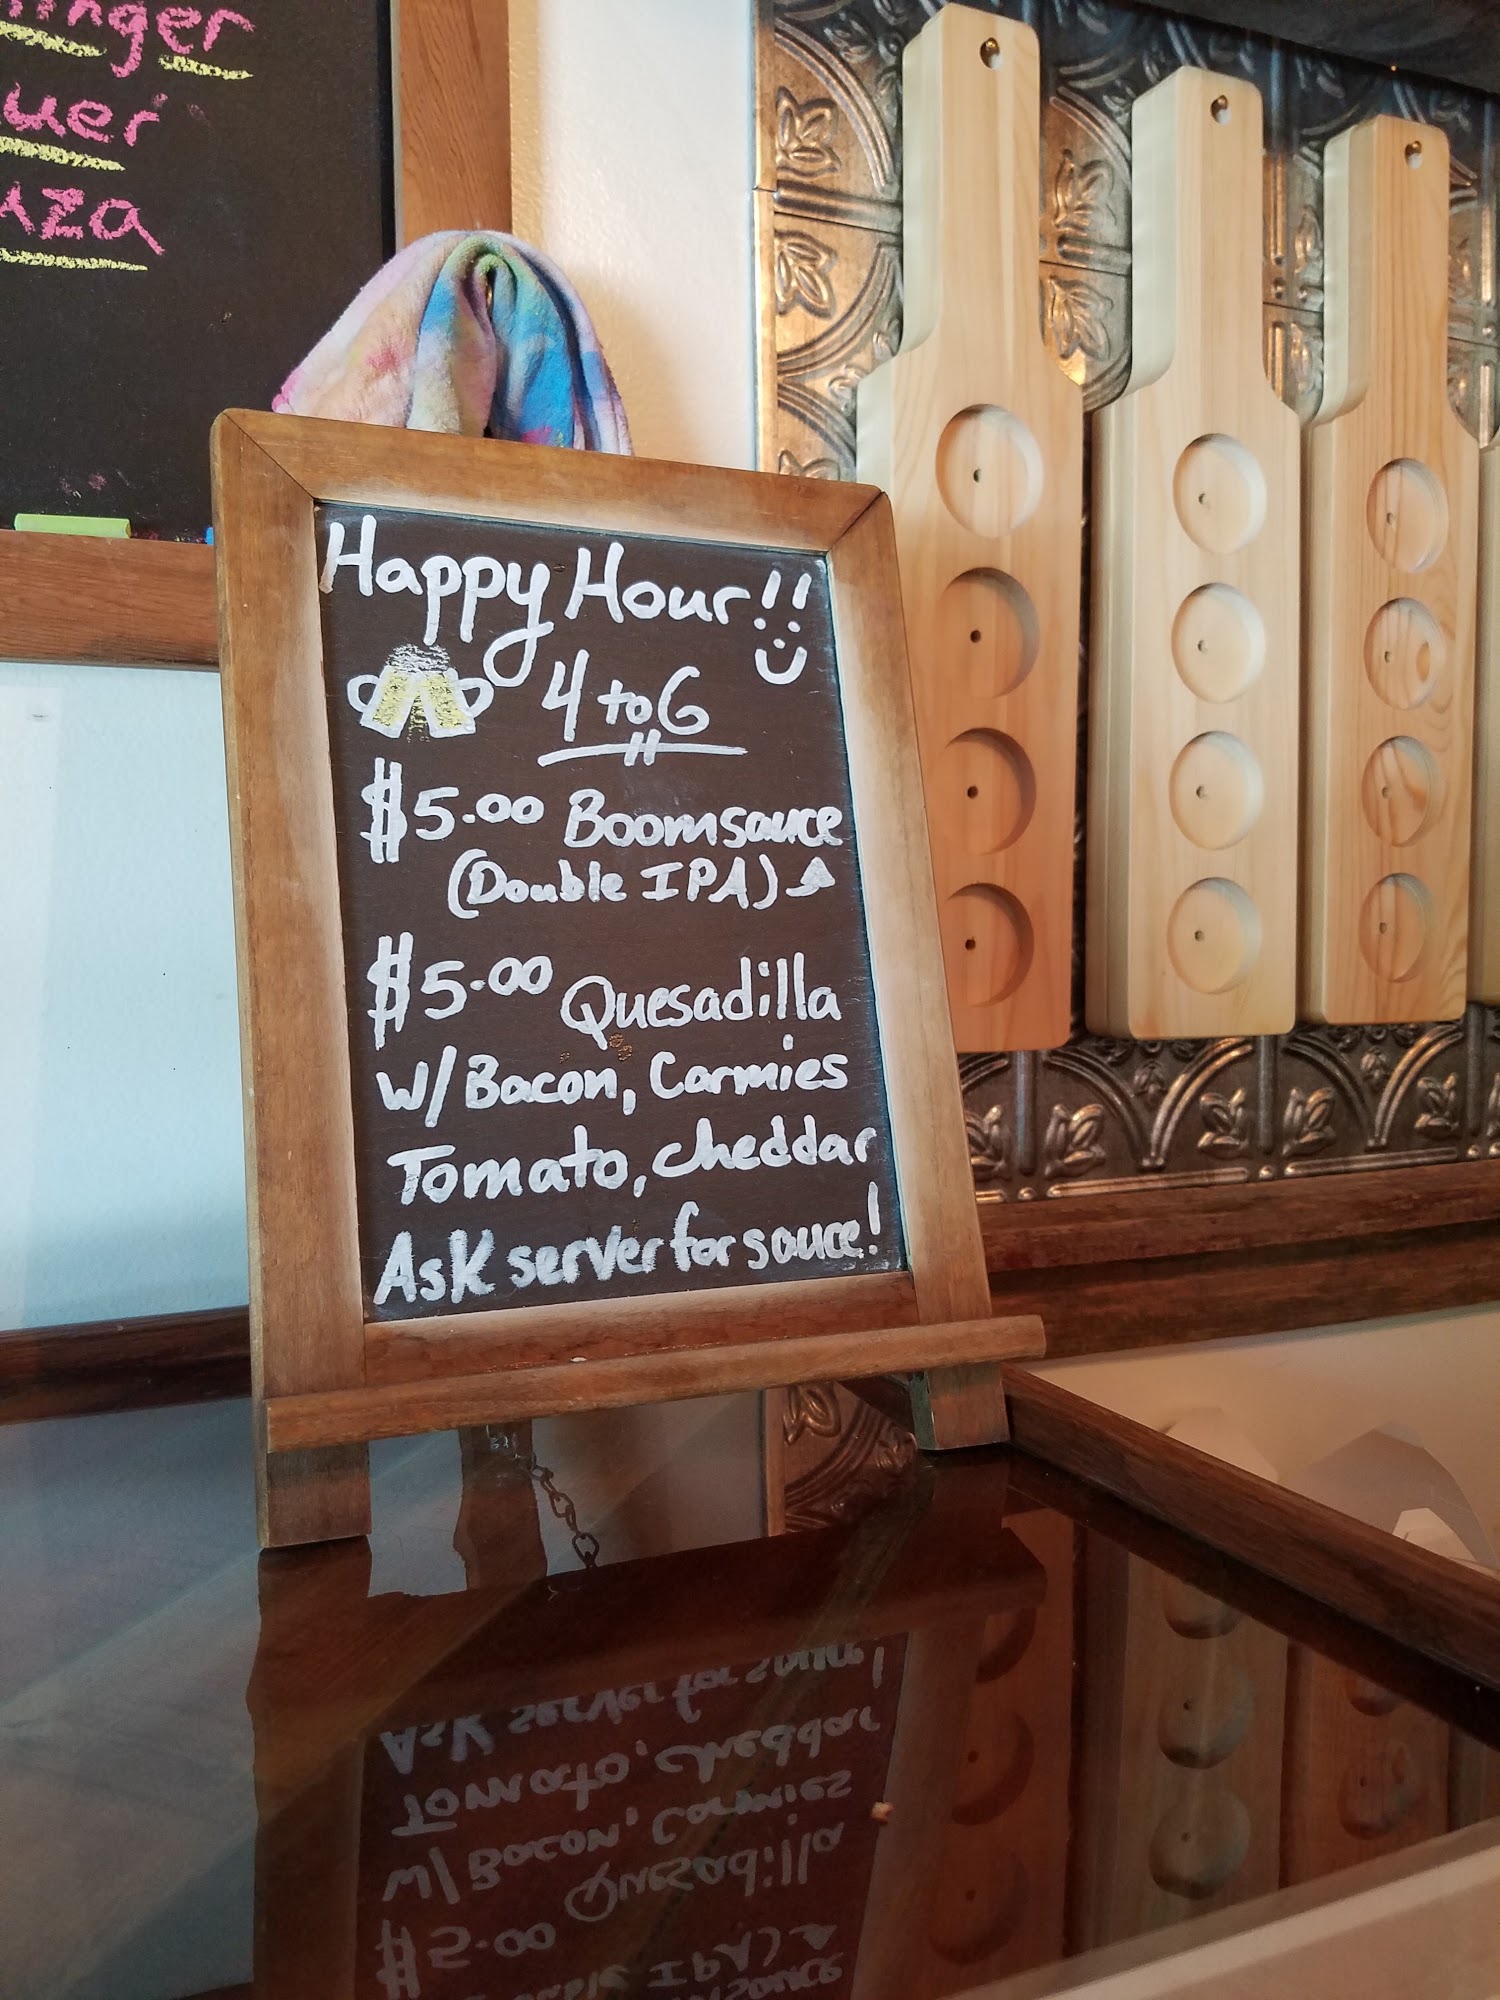 Happy Hour!!
4 to 6
$5.00 Boomsauce
(Double IPA)
$5.00 Quesadilla
w/Bacon, Carmies
Tomato, cheddar
Ask server for sauce!